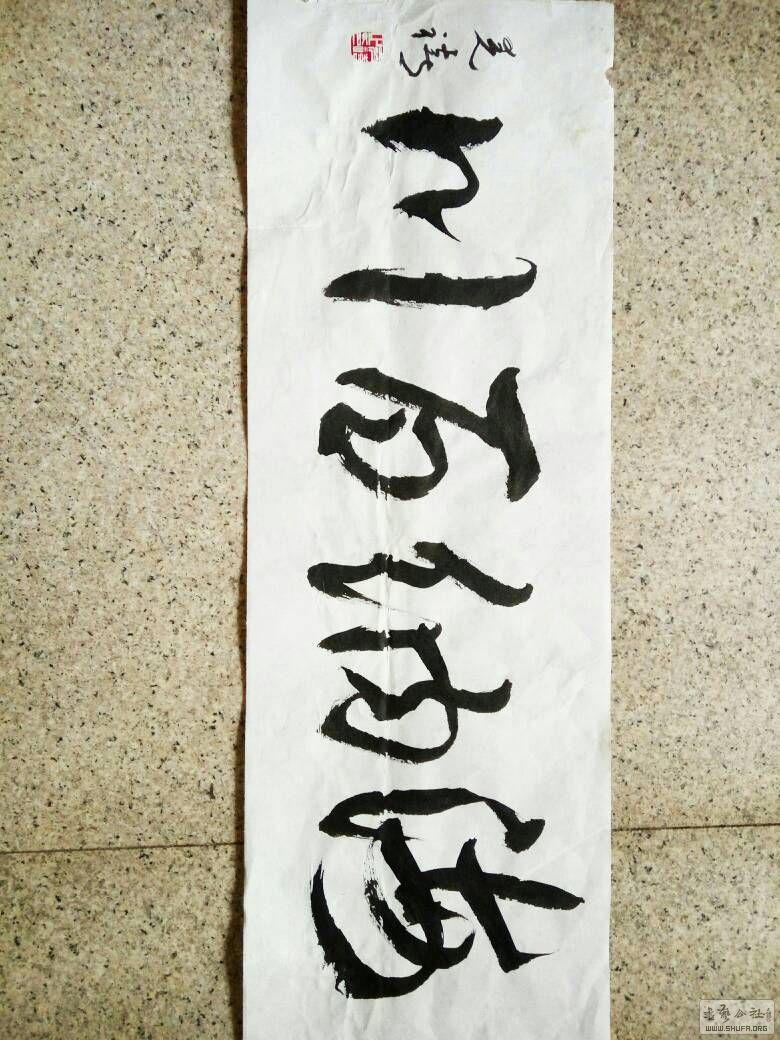 海纳百川
书艺公社
WWW.SHUFA.ORG